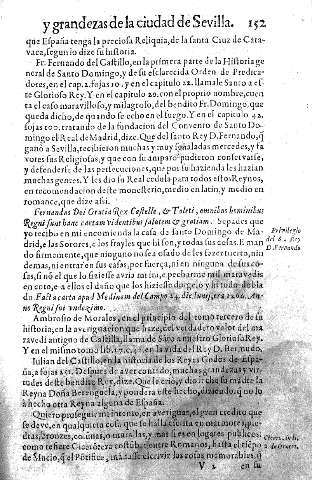 y grandezas de la ciudad de Sevilla. 152
que España tenga la preciosa Reliquia, de la santa Cruz de Cara-
vaca, segun lo dize su historia.
Fr. Fernando del Castillo, en la primera parte de la Historia ge
neral de Santo Domingo, y de su esclarecida Orden de Predica-
dores, en el cap. 2. fojas 10. y en el capitulo 22. llamale Santo a es-
te Glorioso Rey. Y en el capitulo 20. con el proprio nombre, cuen
ta el caso maravilloso, y milagroso, del bendito Fr. Domingo, que
queda dicho, de quando se echo en el fuego. Y en el capitulo 42.
fojas 100. tratando de la fundacion del Convento de Santo Do-
mingo el Real de Madrid, dize. Que del Santo Rey D. Fernando, q̃
ganò a Sevilla, recibieron muchas y muy señaladas mercedes, y fa
vores sus Religiosas, y que con su amparo pudieron conservarse,
y defenderse de las persecuciones, que por su hazienda les hazian
muchas gentes. Y les dio su Real cedula para todos estos Reynos,
en recomendacion deste monesterio, medio en latin, y medio en
romance, que dize assi.
Fernandus Dei Gratia Rex Castellæ, & Toleti, omnibus hominibus
Regni sui hanc cartam videntibus salutem & gratiam. Sepades que
yo recibo en mi encomienda la casa de Santo Domingo de Ma-
drid, e las Sorores, e los frayles que hi son, y todas sus cosas. E man
do firmemente, que ninguno no sea osado de les fazer tuerto, nin
demas, nin entrar en sus casas, por fuerça, ni en ninguna de sus co-
sas, si no el que lo fiziesse avria mi ira, e pecharme
en coto, e a ellos el daño que los fiziesse
do. Facta carta apud Medinam del Campo 24. die
nus Regni sui
Ambrosio de Morales, en el principio del tomo tercero de su
historia, en la averiguacion que haze, del verdadero valor del ma
ravedi antiguo de Castilla, llama de Santo a nuestro Glorioso Rey.
Y en el mismo tomo en la vida del Rey D. Bermudo.
Julian del Castillo, en la historia de los Reyes Godos de Espa-
ña, a fojas Despues de aver contado, muchas grandezas y vir-
tudes deste bendito Rey, dize. Que lo crio, y dio leche la madre la
Reyna Doña Berenguela, y pondera este hecho, diziendo, que no lo
à hecho otra Reyna alguna de España.
Quiero proseguir mi intento, en averiguar, el gran credito que
se deve, en qualquiera cosa, que se halla escrita en marmores, pie-
dras, bronzes, colunas, o murallas, y mas si es en lugares publicos,
como refiere Ciceròn entre Romanos, hasta el
de q̃ el Pontifice, mandasse escrevir las cosas memorables, q̃
V 2 en su
Privilegio
del S. Rey
D. Fernando